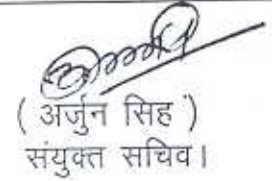 ( अर्जुन सिह )
संयुक्त सचिव।